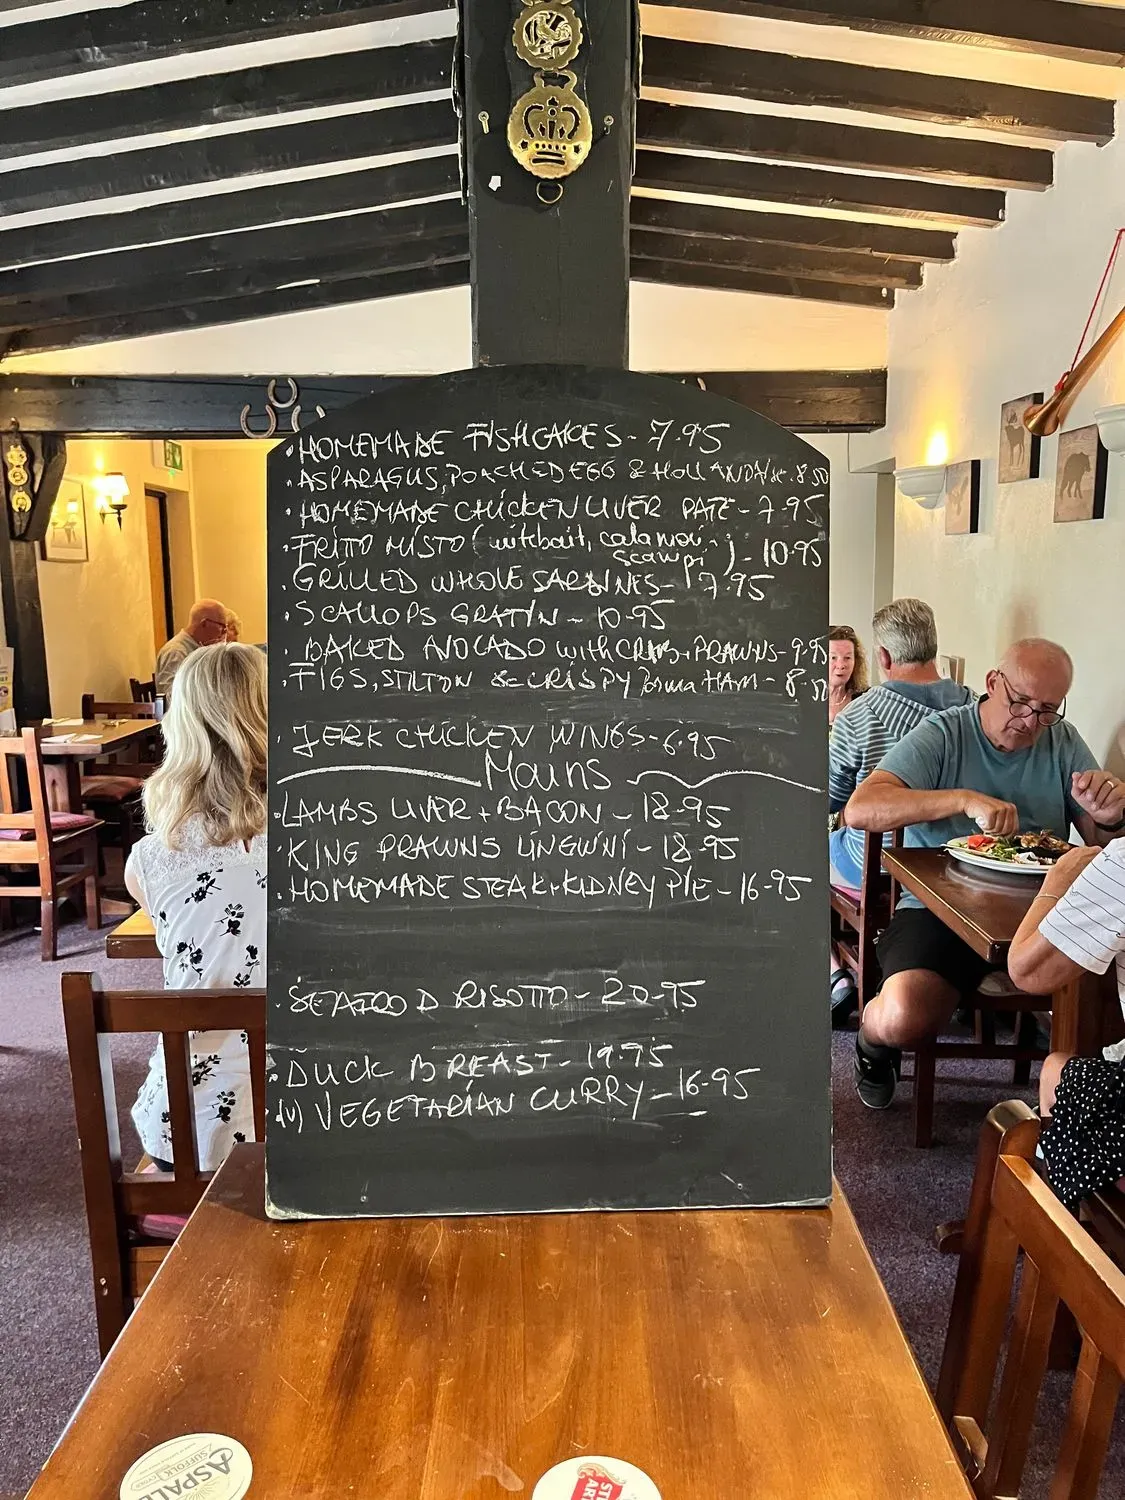 • HOMEMADE FISHCAKES - 7.95
• ASPARAGUS, POACHED EGG & HOLLANDAISE - 8.50
• HOMEMADE CHICKEN LIVER PATE - 7.95
• FRITTO MISTO ( witebait, calamari
scampi ) - 10.95
• GRILLED WHOLE SARDINES - 7.95
• SCALLOPS GRATIN - 10.95
• BAKED AVOCADO with CRAB + PRAWNS - 9.95
• FIGS, STILTON & CRISPY Parma HAM - 8.50
• JERK CHICKEN WINGS - 6.95
Mains
• LAMBS LIVER + BACON - 18.95
• KING PRAWNS LINGUINI - 18.95
• HOMEMADE STEAK + KIDNEY PIE - 16.95
• SEAFOOD RISOTTO - 20.95
• DUCK BREAST - 19.75
• (V) VEGETARIAN CURRY - 16.95
ASPALL
SUFFOLK CYDER
ST
AR